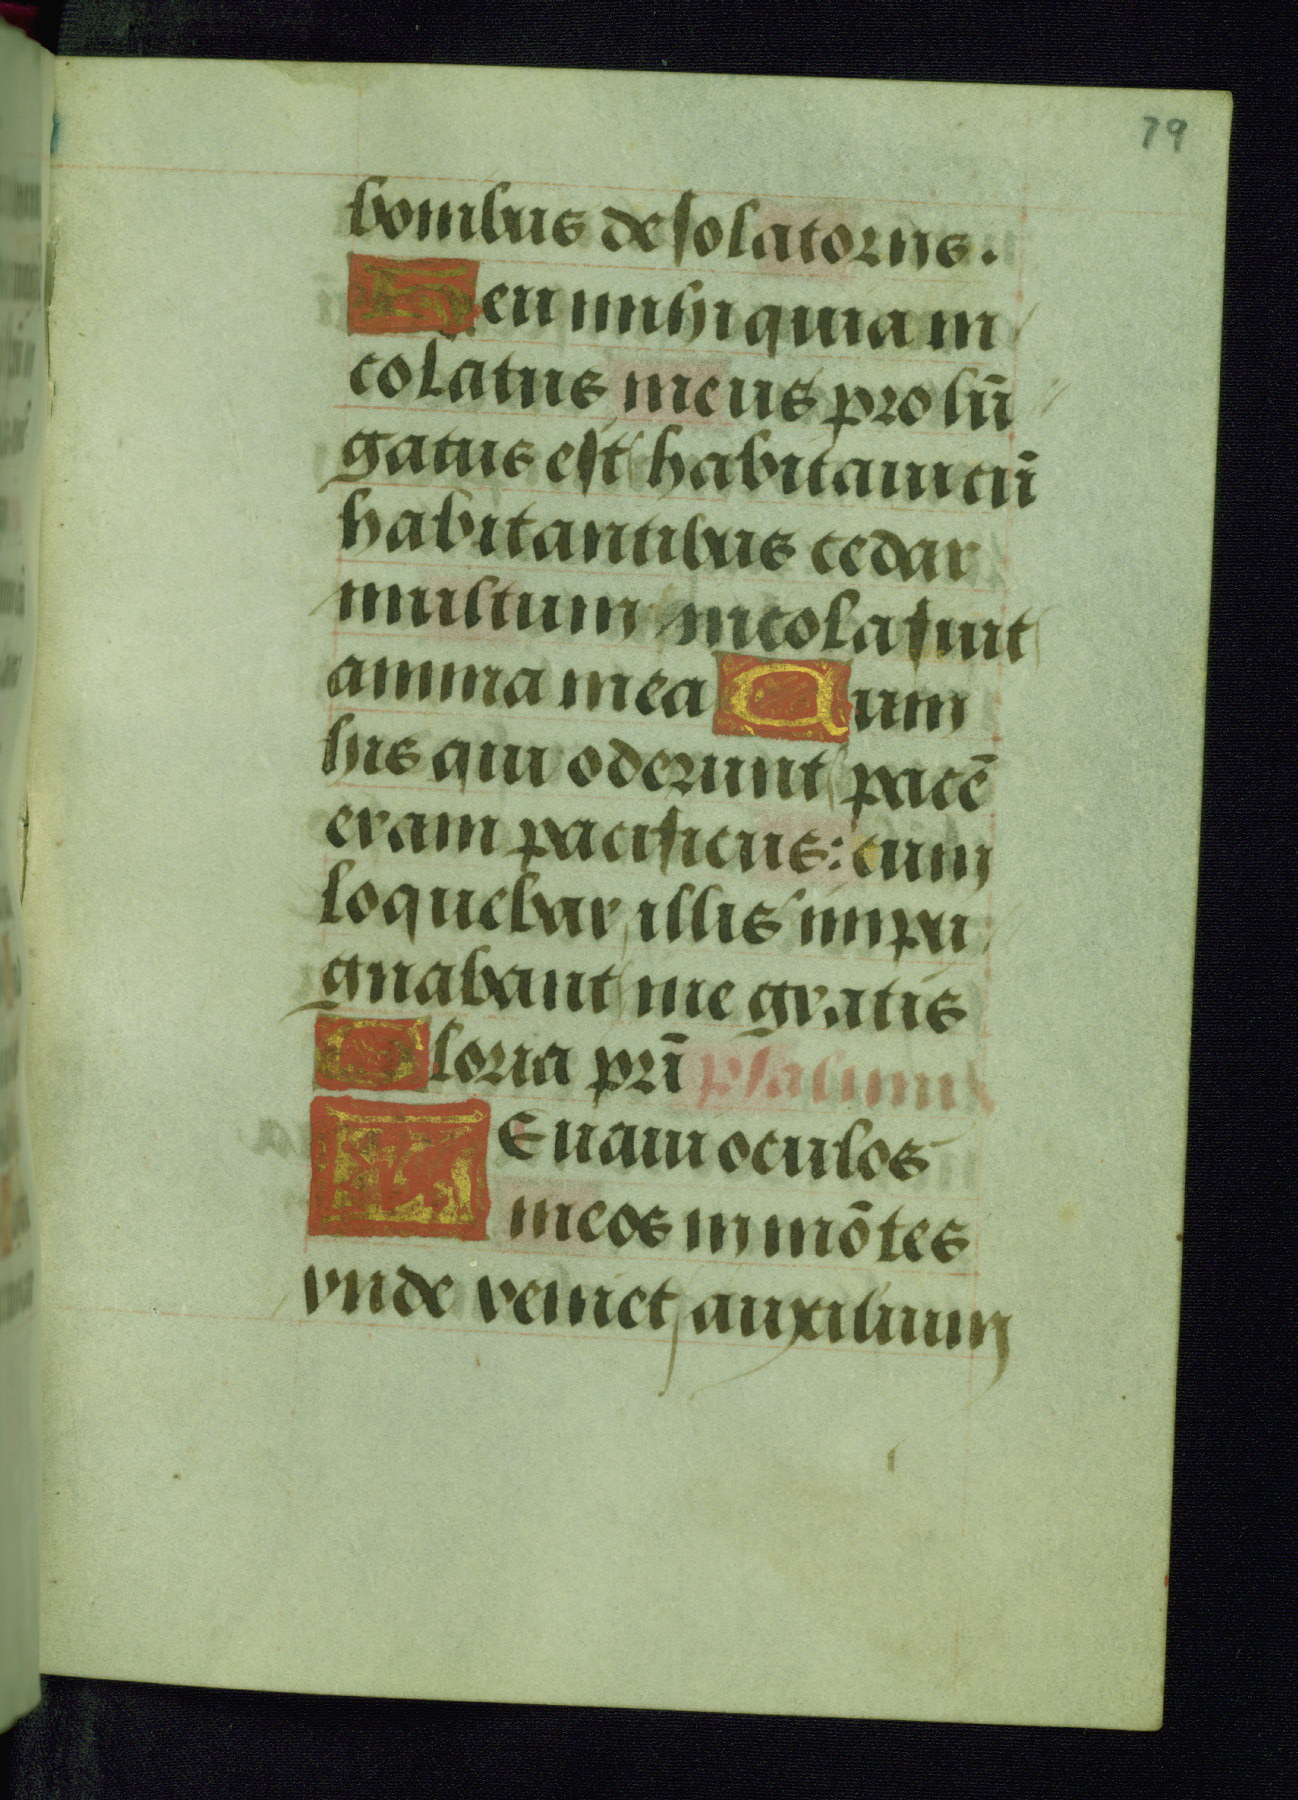 79
bonibus desolatoriis.
Heu mihi quia in
colatus meus prolū
gatus est habitaui cū
habitantibus cedar
multum incola fuit
anima mea Cum
his qui oderunt pacē
eram pacificus: cum
loquebar illis inpu
gnabant me gratis
Gloria pr̄i psalmus
LEuaui oculos
meos in mōtes
vnde veniet auxilium